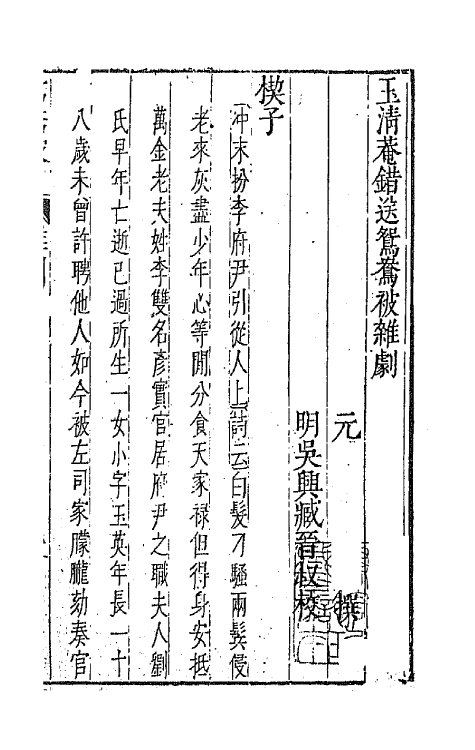 玉清菴錯送鴛鴦被雜劇
元 撰
明吳興臧晉叔校
楔子
冲末扮李府尹引從人上詩云白髮刁騷兩鬢侵
老來灰盡少年心等閒分食天家禄但得身安抵
萬金老夫姓李雙名彥實官居府尹之職夫人劉
氏早年亡逝已過所生一女小字玉英年長一十
八歲未曾許聘他人如今被左司家朦朧劾奏官